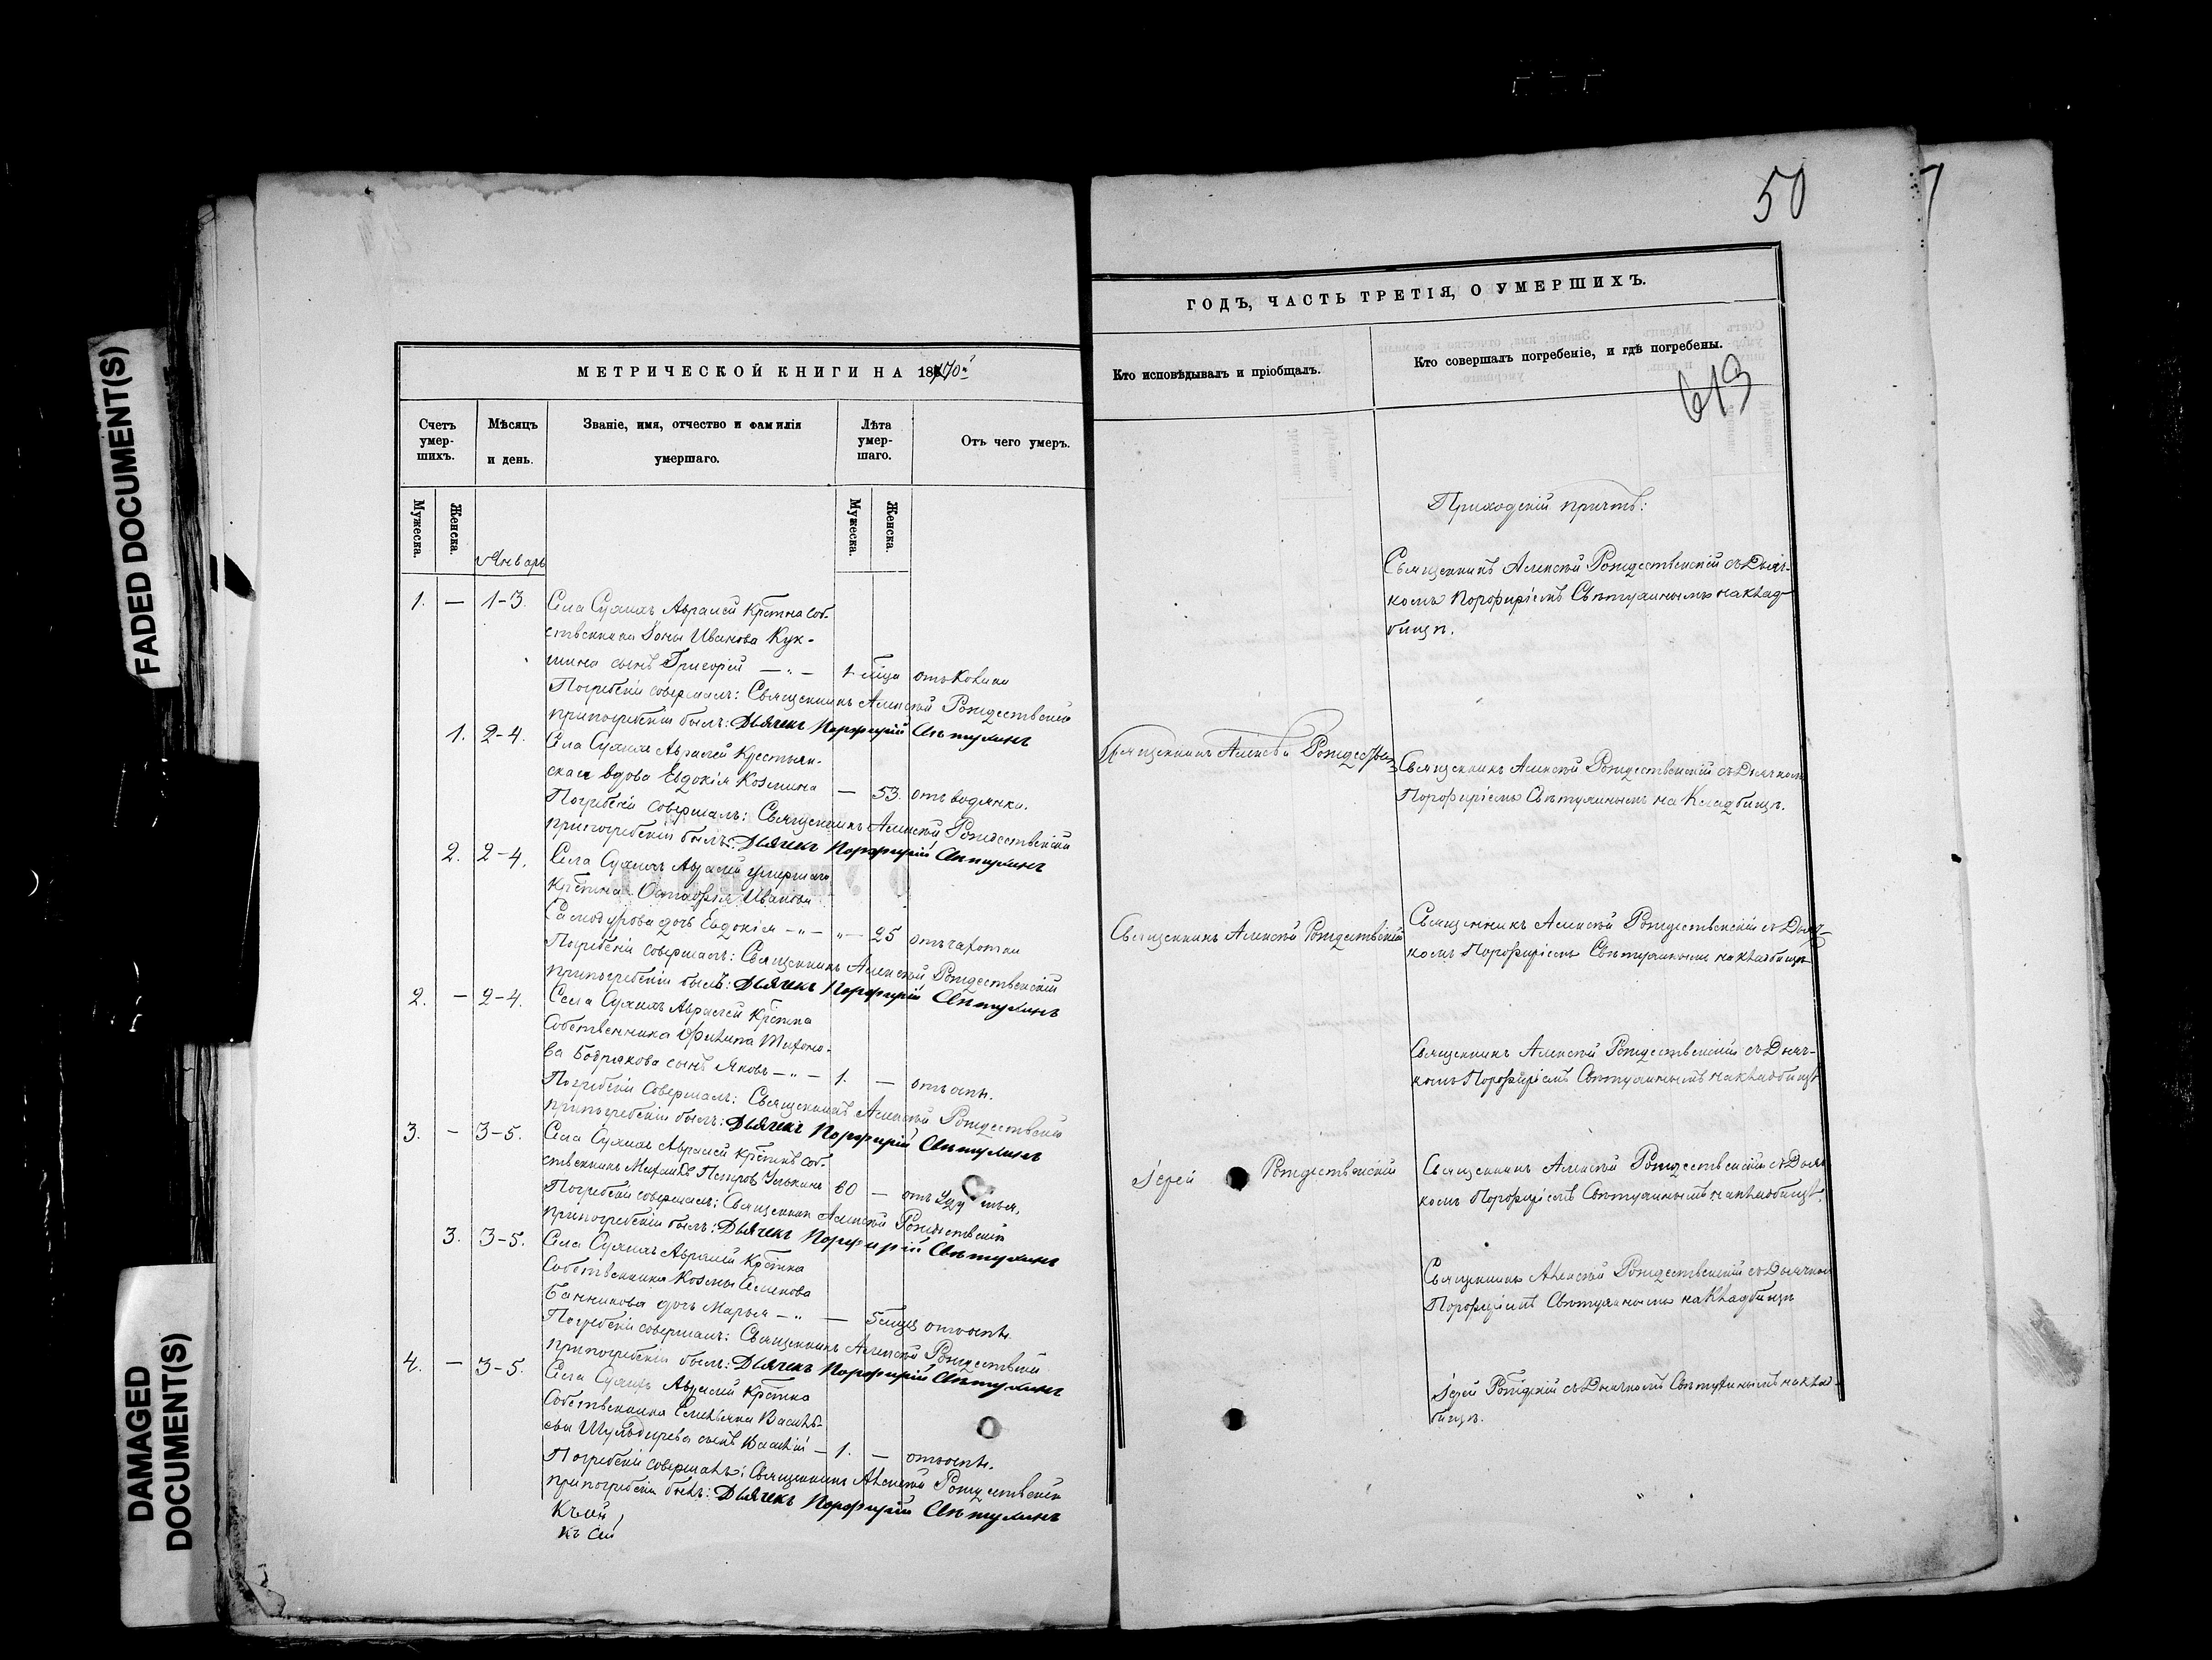 FADED DOCUMENT(S)
DAMAGED
DOCUMENT(S)
50
7
МЕТРИЧЕСКОЙ КНИГИ НА 1870й
ГОДЪ, ЧАСТЬ ТРЕТІЯ, О УМЕРШИХЪ.
Счетъ умер-шихъ.
Мѣсяцъ и день.
Званіе, имя, отчество и фамилія умершаго.
Лѣта умер-шаго.
Отъ чего умеръ.
Кто исповѣдывалъ и пріобщалъ.
Кто совершалъ погребеніе, и гдѣ погребены.
613
Мужеска.
Женска.
Январь
Мужеска.
Женска.
Приходскій причтъ:
1. — 1-3. Села Сухихъ Авралей Крстнна соб-
ственника Ивана Кук-
шина сынъ Григорій — " —
Погребеніе совершалъ: Священникъ Алексѣй Рождественскій
при погребеніи былъ: Дьячекъ Порфирій Свѣтухинъ
Священникъ Алексѣй Рождественскій съ Дьяч-
комъ Порфиріемъ Свѣтухинымъ на клад-
бищѣ.
1. 2-4. Села Сухихъ Авралей Крестьян-
ская вдова Евдокія Козмина — 53. отъ водянки.
Погребеніе совершалъ: Священникъ Алексѣй Рождественскій
при погребеніи былъ: Дьячекъ Порфирій Свѣтухинъ
Священникъ Алексѣй
Священникъ Алексѣй Рождественскій съ Дьячкомъ
Порфиріемъ Свѣтухинымъ на Кладбищѣ.
2. 2-4. Села Сухихъ Авралей умершаго
Крстнина Ивановa
дочь Евдокія — " — " — 25 отъ чахотки
Погребеніе совершалъ: Священникъ Алексѣй Рождественскій
при погребеніи былъ: Дьячекъ Порфирій Свѣтухинъ
Священникъ Алексѣй Рождественскій
Священникъ Алексѣй Рождественскій съ Дьяч-
комъ Порфиріемъ Свѣтухинымъ на кладбищѣ
2. — 2-4. Села Сухихъ Авралей Крстнна
Собственника Филипа Тихоно-
ва Бодрякова сынъ Яковъ — " — 1. — отъ оспы.
Погребеніе Совершалъ: Священникъ Алексѣй Рождественскій
при погребеніи былъ: Дьячекъ Порфирій Свѣтухинъ
Священникъ Алексѣй Рождественскій съ Дьяч-
комъ Порфиріемъ Свѣтухинымъ на кладбищѣ
3. — 3-5. Села Сухихъ Авралей Крстнинъ соб-
ственникъ Михаилъ Петровъ 60 —
Погребеніе совершалъ: Священникъ Алексѣй Рождественскій
при погребеніи былъ: Дьячекъ Порфирій Свѣтухинъ
Іерей Рождественскій
Священникъ Алексѣй Рождественскій съ Дьяч
комъ Порфиріемъ Свѣтухинымъ на кладбищѣ.
3. 3-5. Села Сухихъ Авралей Крстнна
Собственника Козмы Семенова
Банникова дочь Марья — " — отъ оспы.
Погребеніе совершалъ: Священникъ Алексѣй Рождественскій
при погребеніи былъ: Дьячекъ Порфирій Свѣтухинъ
Священникъ Алексѣй Рождественскій съ Дьячкомъ
Порфиріемъ Свѣтухинымъ на кладбищѣ
4. — 3-5. Села Сухихъ Авралей Крстнна
Собственника Емельяна Василь-
ева сынъ Василій — 1. — отъ оспы.
Погребеніе совершалъ: Священникъ Алексѣй Рождественскій
при погребеніи былъ: Дьячекъ Порфирій Свѣтухинъ
Іерей Рождскій съ Дьячкомъ Свѣтухинымъ на клад-
бищѣ.
Къ сей